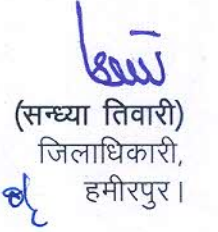 (सन्ध्या तिवारी)
जिलाधिकारी,
हमीरपुर।